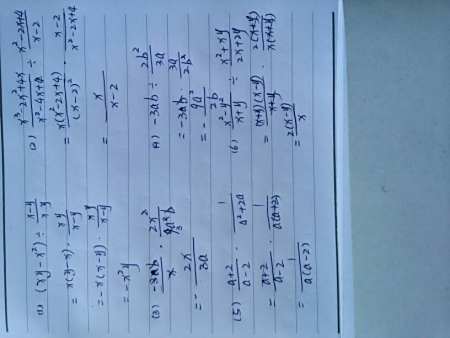 (1) (xy - x²) ÷ (x-y)/(xy)
= x(y-x) · xy/(x-y)
= -x(x-y) · xy/(x-y)
= -x²y
(2) (x³-2x²+4x)/(x²-4x+4) ÷ (x²-2x+4)/(x-2)
= x(x²-2x+4)/(x-2)² · (x-2)/(x²-2x+4)
= x/(x-2)
(3) -3ab/x · 2x²/9a²b
= -2x/3a
(4) -3ab ÷ 2b²/3a
= -3ab · 3a/2b²
= -9a²/2b
(5) (a+2)/(a-2) · 1/(a²+2a)
= (a+2)/(a-2) · 1/(a(a+2))
= 1/(a(a-2))
(6) (x²-y²)/(x+y) ÷ (x²+xy)/(2x+2y)
= (x+y)(x-y)/(x+y) · 2(x+y)/(x(x+y))
= 2(x-y)/x